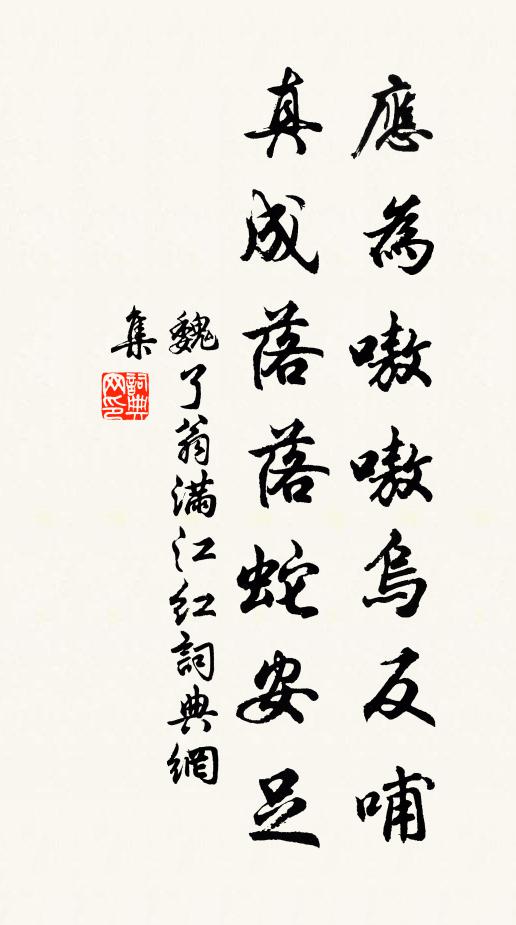 應為嗷嗷烏反哺
真成落落蛇安足
魏了翁滿江紅詞典網
集
詞典
网印